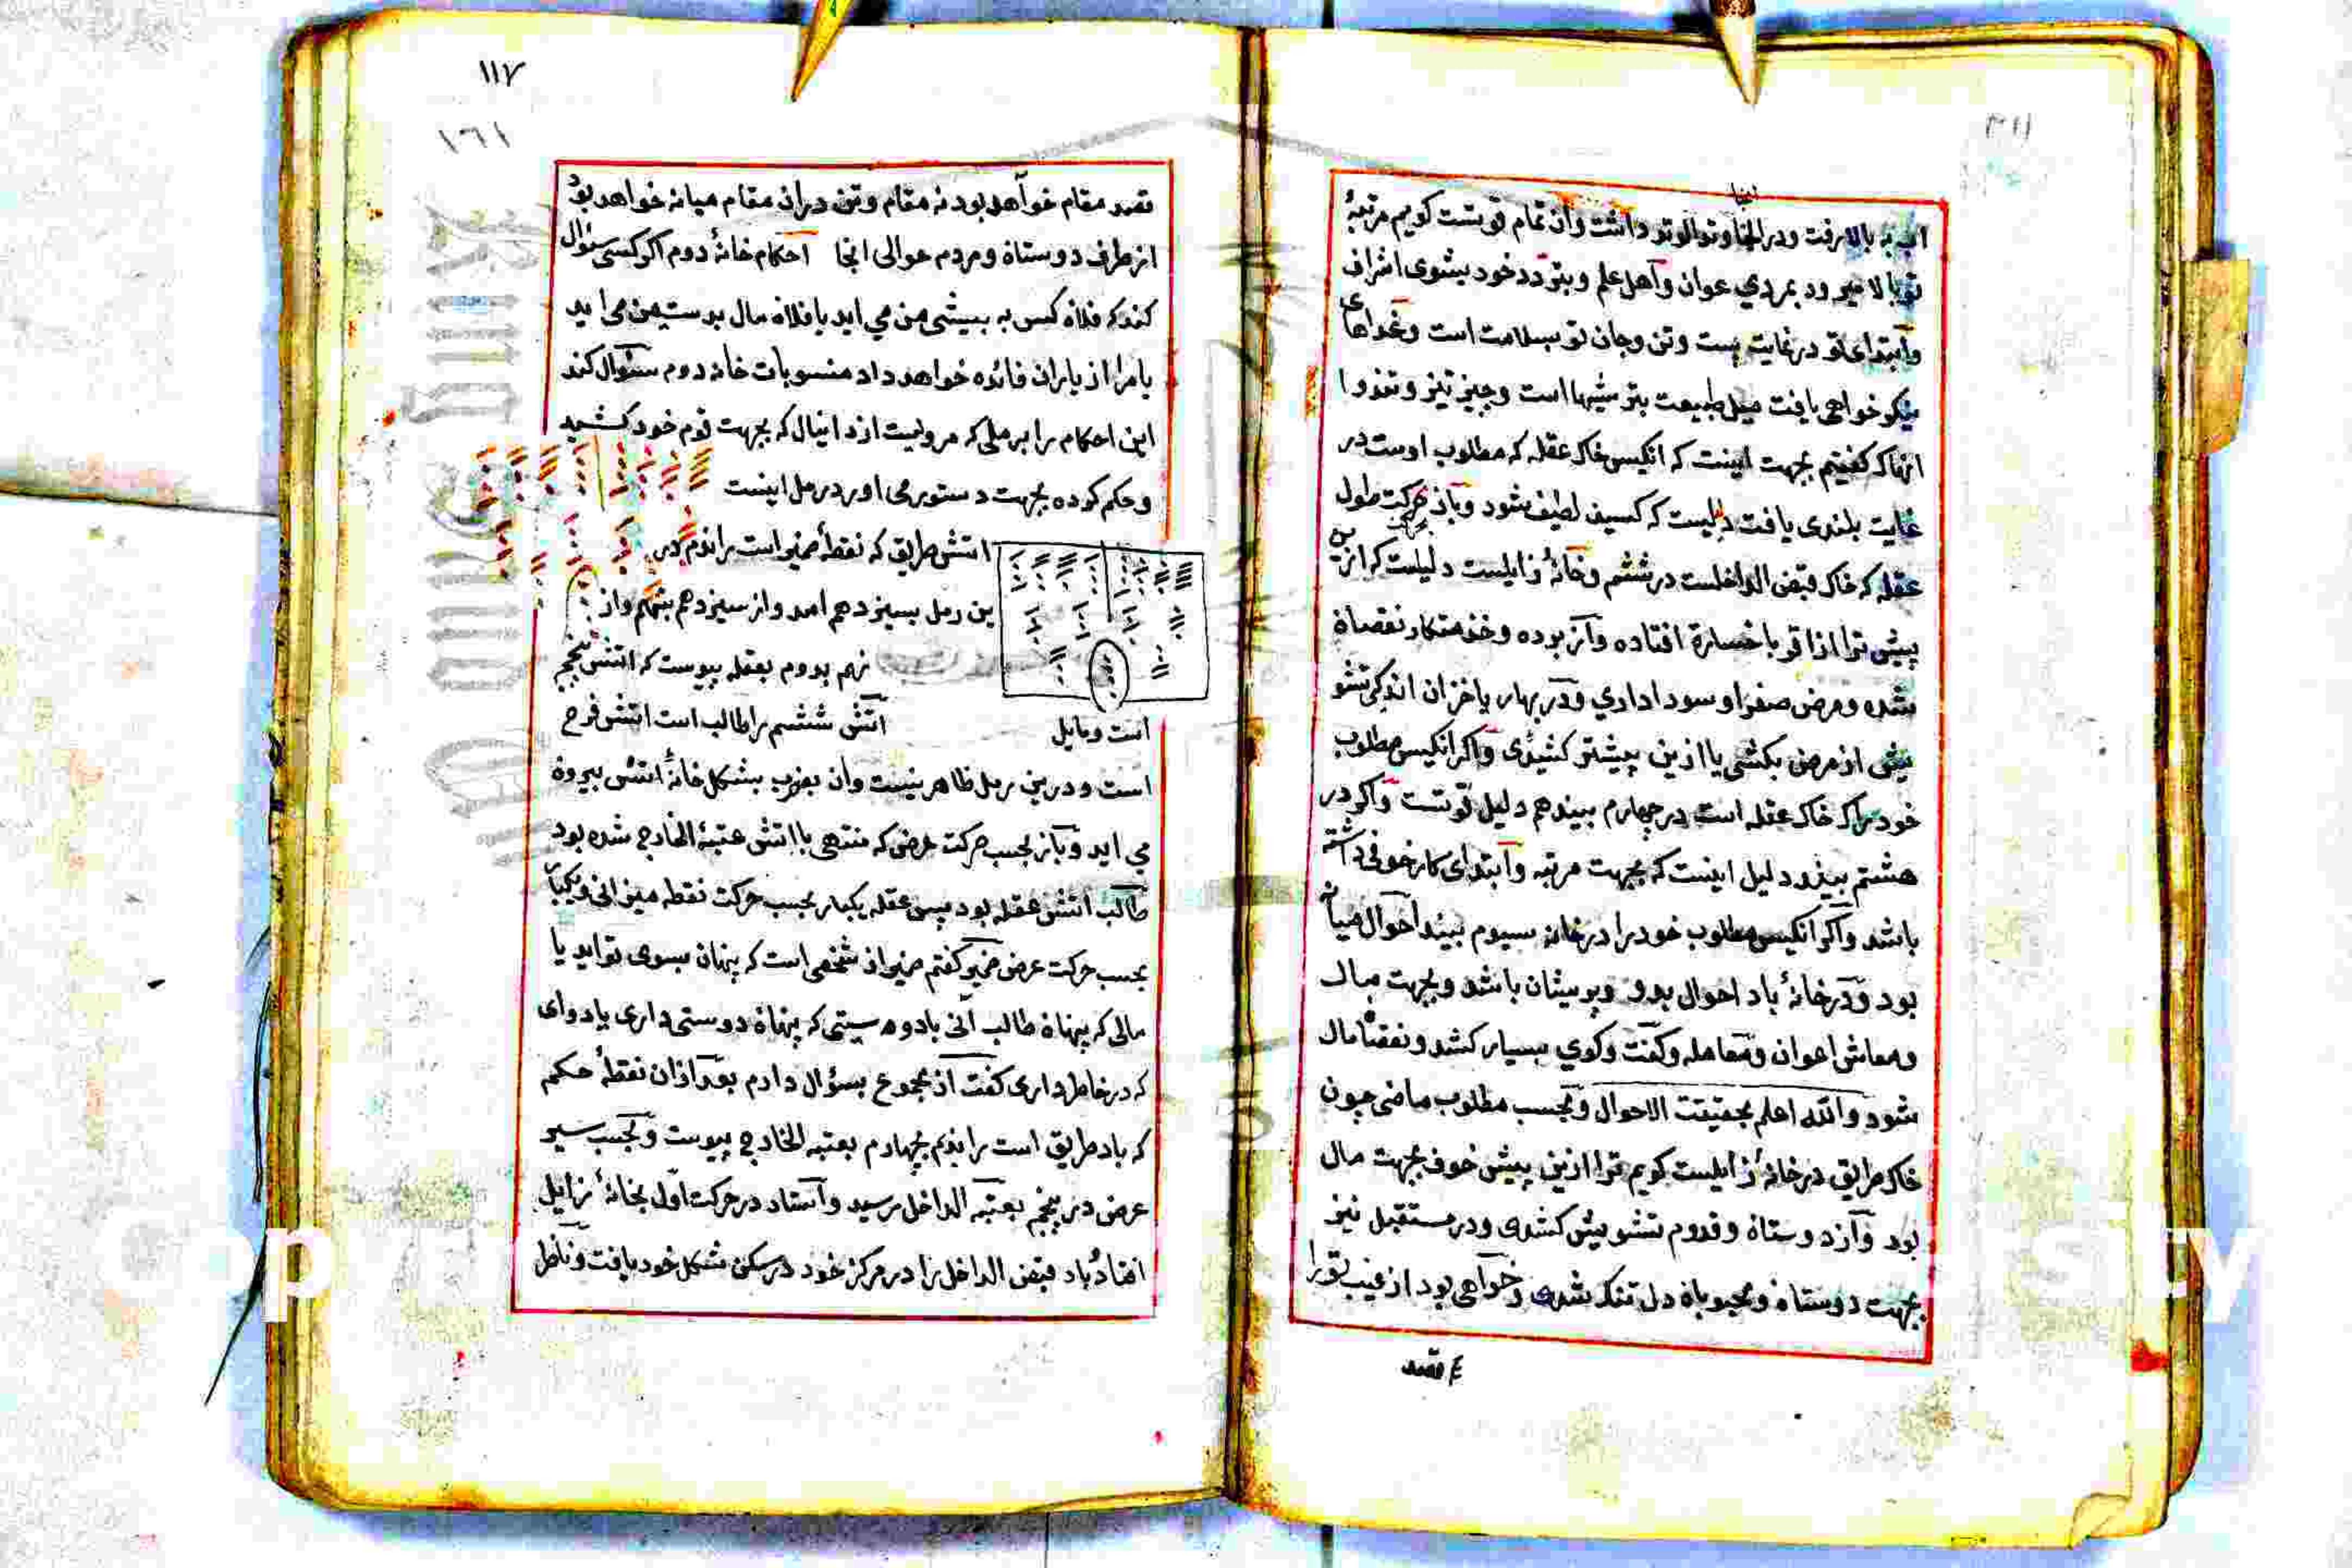 اب به بالا رفت ودر انجا وتو الوتو داشت وان تمام توست کویم مرتبۀ
تو بالا میرود بمردی عوان واهل علم وبتردد خود بشوی اشراف
وابتدای تو در غایت پست وتن وجان تو بسلامت است وغداهای
نیکو خواهی یافت میل طبیعت بتر شیها است وچیز تیز وتندوا
انها که کفتیم بجهت اینست که انکیس خاک عقله که مطلوب اوست در
غایت بلندی یافت دلیلست که کسیف لطیف شود وباز حرکت طول
عقله که خاک قبض الداخلست در ششم وخانۀ زایلست دلیلست که ازین
پیش ترا اذا قربا خسارة افتاده واز بوده وخذمتکار نقصان
شده ومرض صفرا وسودا داری ودر بهار یا خزان اندکی تشو
یش از مرض بکشی یا ازین پیشتر کشیدی واکر انکیس مطلوب
خود را که خاک عقله است در چهارم بیندهم دلیل توست واکر در
هشتم بیند دلیل اینست که بجهت مرتبه وابتدای کار خوفی داشته
باشد واکر انکیس مطلوب خود را در خانه سیوم بیند احوال میانه
بود ودر خانۀ باد احوال بدو وپریشان باشد وبجهت مال
ومعاش اعوان ومعامله وکفت وکوی بسیار کشد ونقصان مال
شود والله اعلم بحقیقت الاحوال وبحسب مطلوب ماضی چون
خاک طریق در خانۀ زایلست کویم ترا ازین پیش خوف بجهت مال
بود واز دوستان وقدوم تشویش کشدی ودر مستقبل نیز
بجهت دوستان ومحبوبان دل تنک شدی وخواهی بود از غیب تو را
قصد
۱۱۷
۱۶۱
قصد مقام خواهد بود نه مقام وتن دران مقام میانه خواهد بود
از طرف دوستان ومردم حوالی انجا احکام خانۀ دوم اکر کسی سئوال
کند که فلان کس به پیش من می اید یا فلان مال بدست من می اید
یا مرا از یاران فائده خواهد داد منسوبات خانه دوم سئوال کند
این احکام را بر ملی که مرویست از دانیال که بجهت قوم خود کشید
وحکم کرده بجهت دستور می اورد رمل اینست
اتش طریق که نقطۀ ضمیر است راندم در
ین رمل بسیزدهم امد واز سیزدهم بنهم واز
نهم بدوم بعقله پیوست که اتش پنجم
است ومایل اتش ششم را طالب است اتش فرح
است ودرین رمل ظاهر نیست وان بضرب بشکل خانۀ اتش بیرون
می اید وباز بحسب حرکت عرض که منتهی با اتش عتبة الخارج شده بود
طالب اتش عقله بود پس عقله یکبار بحسب حرکت نقطه میزانی ویکبار
بحسب حرکت عرض ضمیر کفتم ضمیر از شخصی است که پنهان بسوی تو اید یا
مالی که پنهان طالب انی یا دوستی که پنهان دوستی داری یا دوای
که در خاطر داری کفت از مجموع بسؤال دارم بعد ازان نقطۀ حکم
که باد طریق است راندم بچهارم بعتبه الخارج پیوست وبحسب سیر
عرض در پنجم بعتبه الداخل رسید واستاد در حرکت اول بخانۀ زایل
افتاد باد قبض الداخل را در مرکز خود در سکن شکل خود یافت وناظر